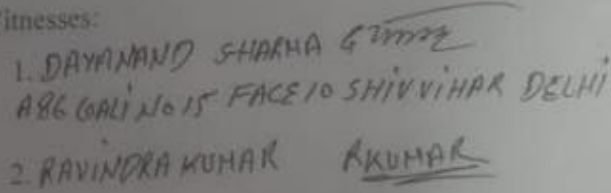 itnesses:
1. DAYANAND SHARMA
A86 GALI NO 15 FACE 10 SHIV VIHAR DELHI
2. RAVINDRA KUMAR RKUMAR